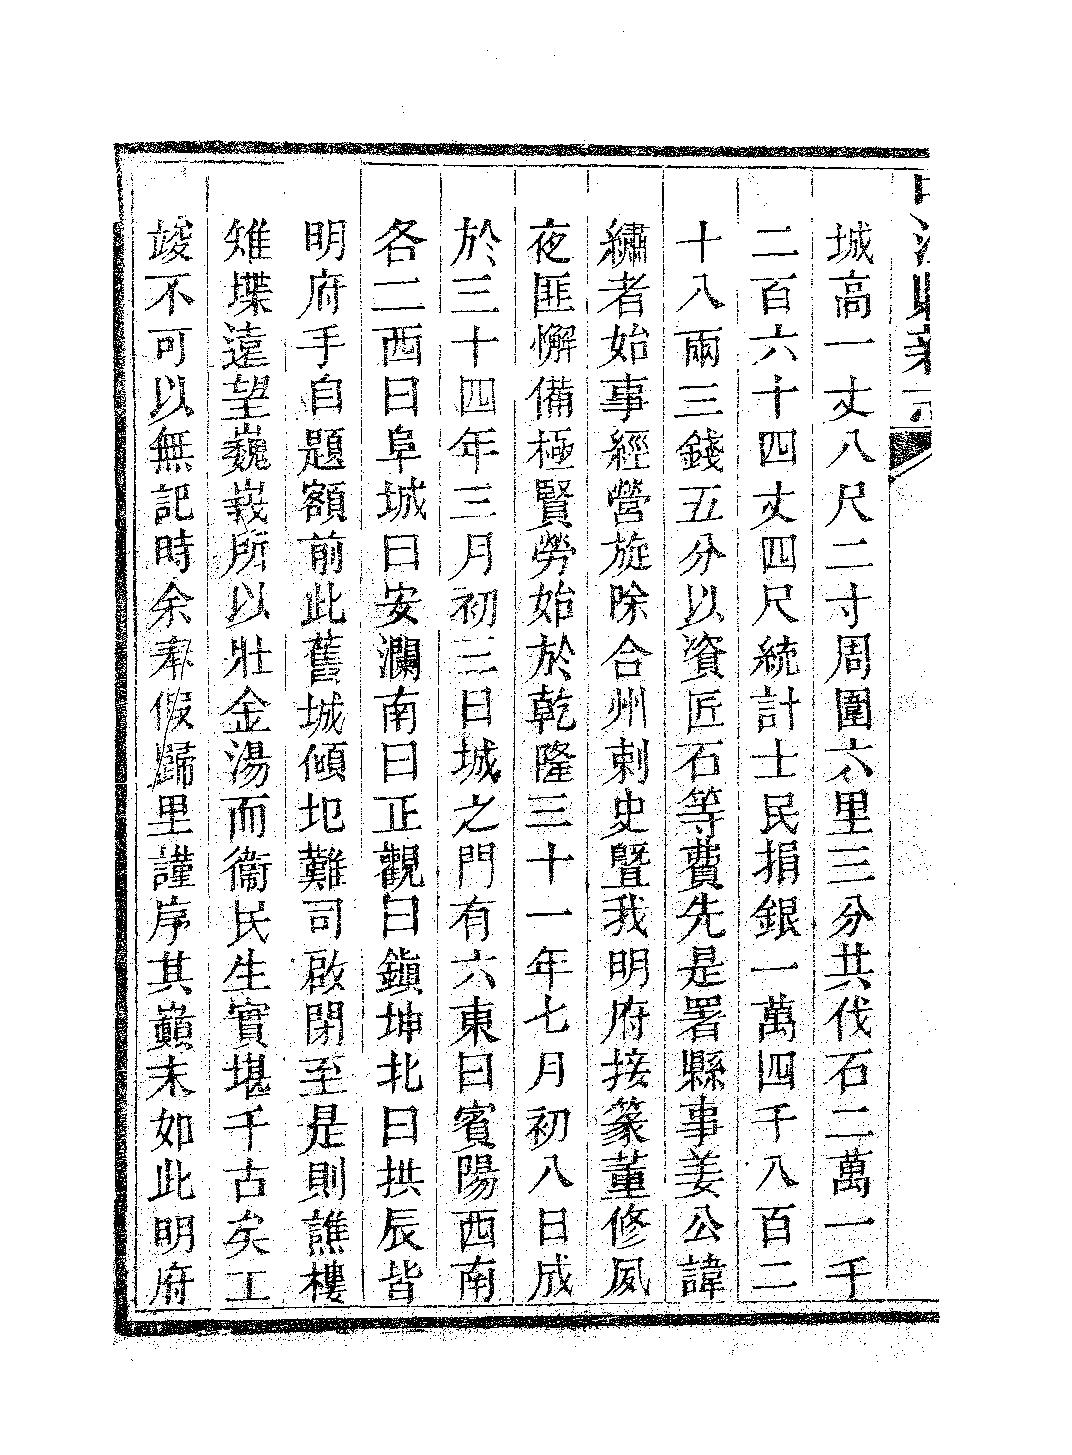 城高一丈八尺二寸周圍六里三分共伐石二萬一千
二百六十四丈四尺統計士民捐銀一萬四千八百二
十八兩三錢五分以資匠石等費先是署縣事姜公諱
繡者始事經營旋除合州刺史曁我明府接篆董修夙
夜匪懈備極賢勞始於乾隆三十一年七月初八日成
於三十四年三月初三日城之門有六東曰賓陽西南
各二西曰阜城曰安瀾南曰正觀曰鎭坤北曰拱辰皆
明府手自題額前此舊城傾圮難司啟閉至是則譙樓
雉堞遠望巍峩所以壯金湯而衞民生實堪千古矣工
竣不可以無記時余奉假歸里謹序其巔末如此明府